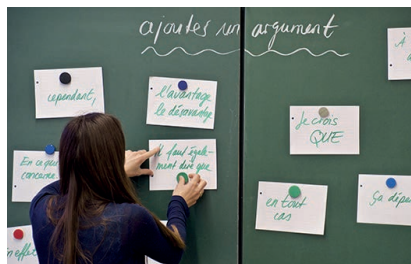 ajoutes un argument
cependant,
l'avantage
le désavantage
Je crois
QUE
À
En ce qui
concerne
faut égale-
ment dire que
en tout
cas
Ça dépe
en effet